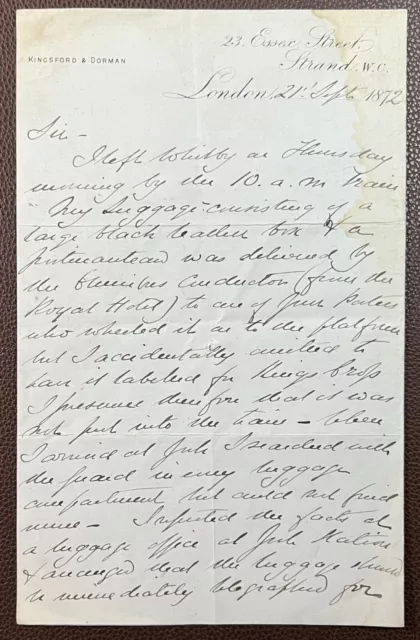 KINGSFORD & DORMAN
23, Essex Street,
Strand. W.C.
London, 21st Sept 1872
Sir -
I left Whitby on Thursday
morning by the 10. a.m train
My luggage - consisting of a
large black leather box & a
portmanteau was delivered by
the Omnibus Conductor (from the
Royal Hotel) to one of your Porters
who wheeled it on to the platform
but I accidentally omitted to
have it labelled for Kings Cross
I presume therefore that it was
not put into the train - When
I arrived at York I searched with
the guard in every luggage
compartment but could not find
mine - I reported the facts at
a luggage office at York Station
& arranged that the luggage should
be immediately telegraphed for